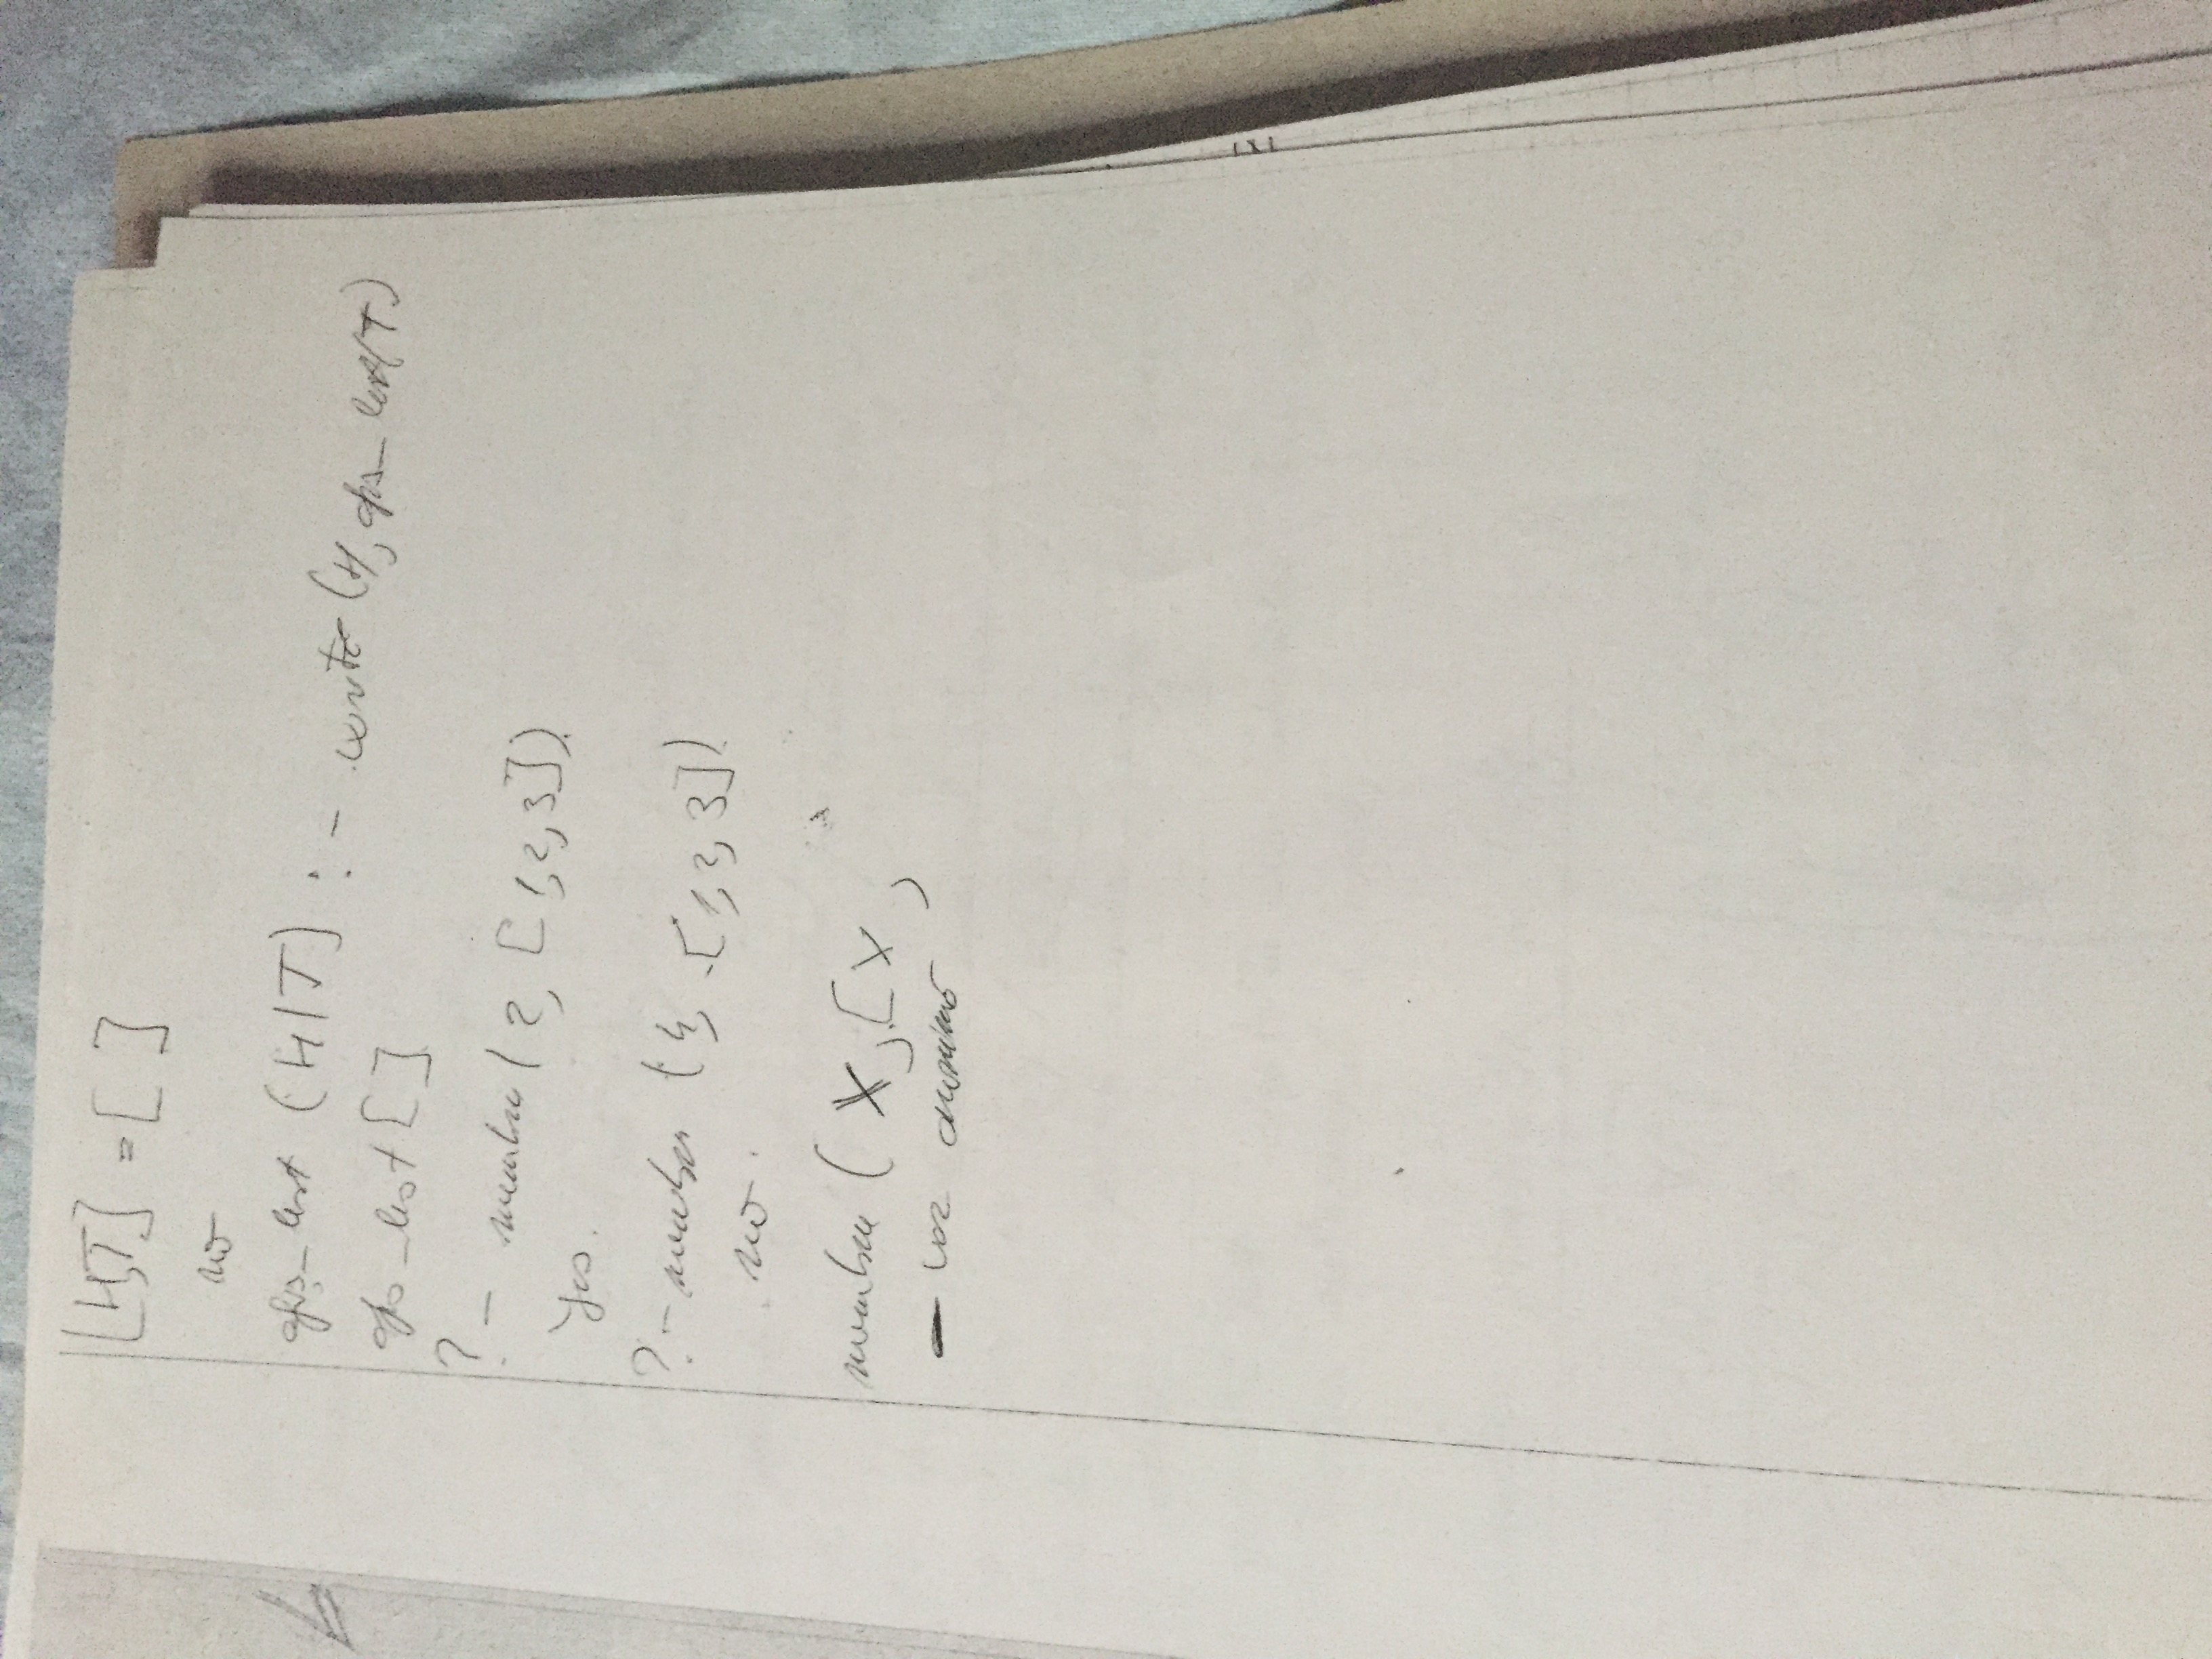 [H,T] = [ ]
no
afis_list (H|T] :- write (H, afis_list(T)
afis_list []
?- member(2, [1,2,3]).
Yes.
?- member (4, [1,2,3]).
no.
member (X, [X,
_ var anonimă